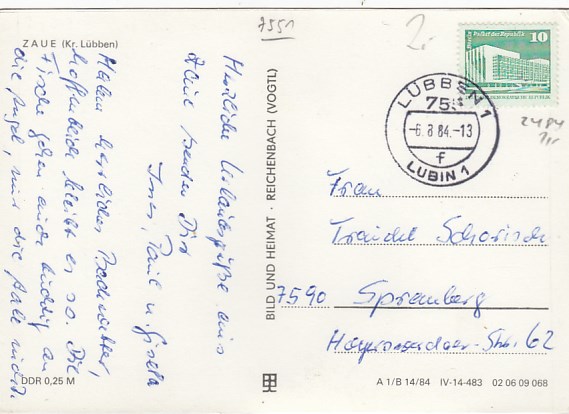 7551
2,-
ZAUE (Kr. Lübben)
Herzliche Urlaubsgrüße aus
Zaue senden Dir
Ines, Paul u. Gisela
Haben herrliches Badewetter,
hoffentlich bleibt es so. Die
Fische gehen auch tüchtig an
die Angel, nur die Aale nicht.
DDR 0,25 M
BILD UND HEIMAT · REICHENBACH (VOGTL)
Palast der Republik
10
LÜBBEN 1
75
-6.8.84.-13
f
LUBIN 1
2484
Frau
Traudel Schorisch
7590 Spremberg
Str. 62
A 1/B 14/84 IV-14-483 02 06 09 068